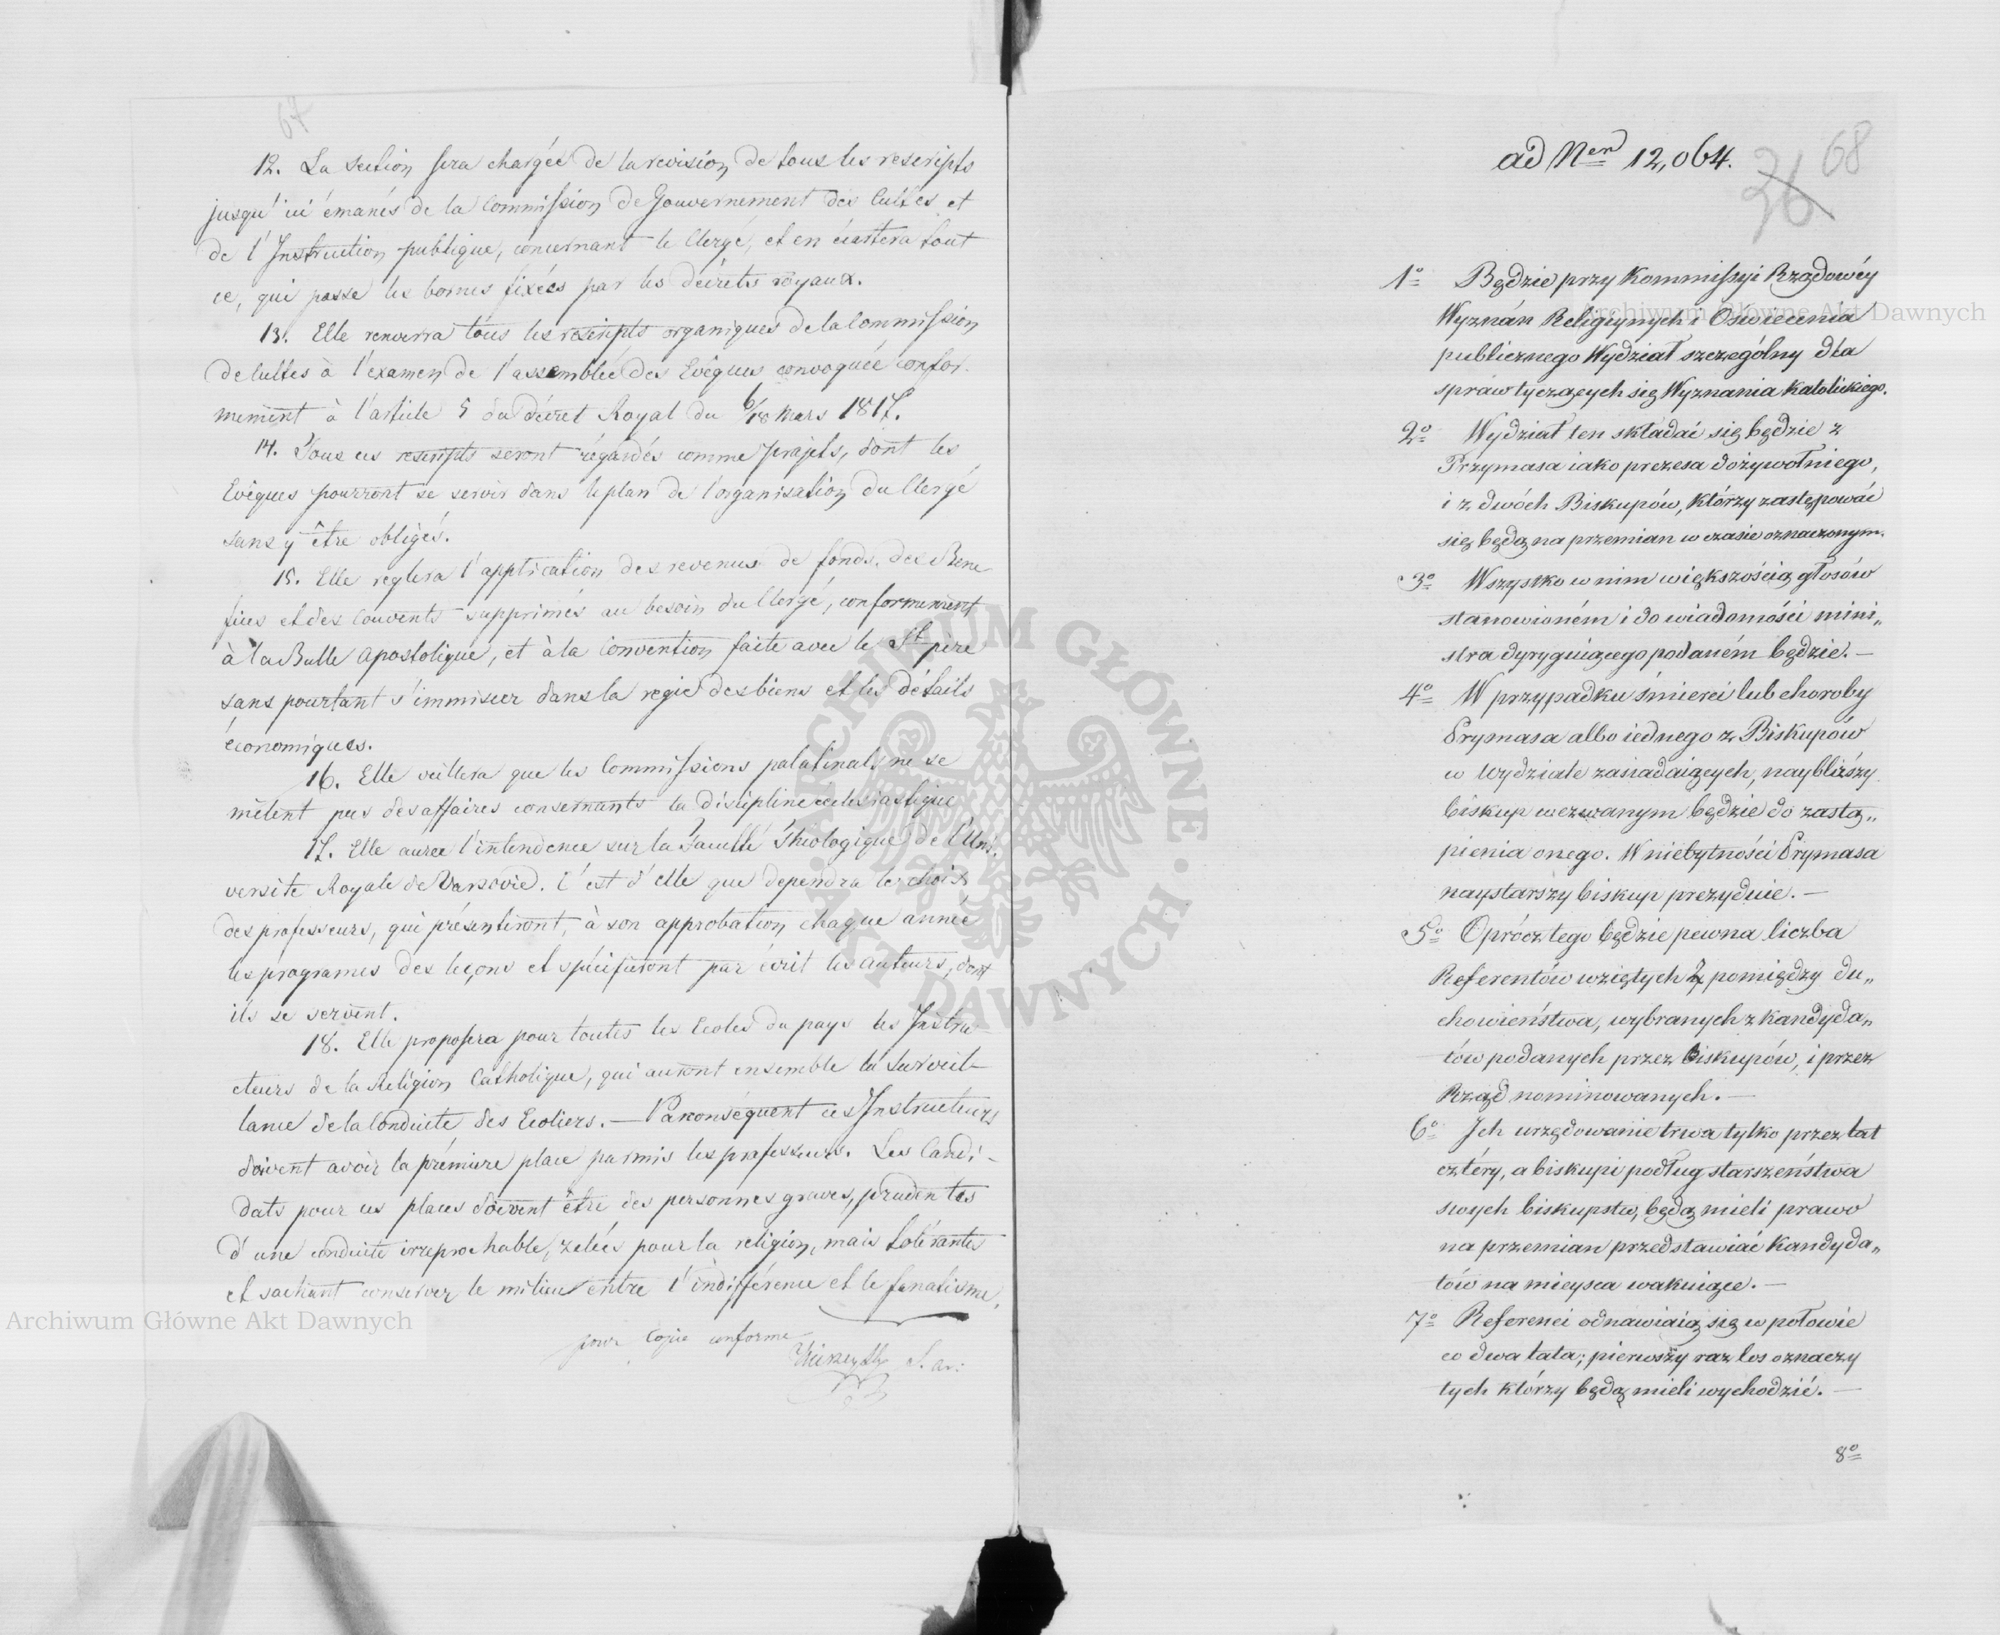 67
12. La Section sera chargée de la revision de tous les rescripts
jusqu'ici émanés de la Commission de Gouvernement des Cultes et
de l'Instruction publique, concernant le Clergé, et en écartera tout
ce, qui passe les bornes fixées par les décrets royaux.
13. Elle renverra tous les rescripts organiques de la Commission
de Cultes à l'examen de l'assemblée des Evêques convoquée confor-
mement à l'article 5 du décret Royal du 6/18 Mars 1817.
14. Tous ces rescripts seront régardés comme projets, dont les
Evêques pourront se servir dans le plan de l'organisation du Clergé
sans y être obligés.
15. Elle reglera l'application des revenus de fonds, des Bene-
fices et des Couvents supprimés au besoin du Clergé, conformement
à la Bulle Apostolique, et à la Convention faite avec le St. père
sans pourtant s'immiscer dans la regie des biens et les détails
économiques.
16. Elle veillera que les Commissions palatinals ne se
mêlent pas des affaires consernants la discipline ecclesiastique
17. Elle aurea l'intendence sur la Faculté Théologique de l'Uni-
versité Royale de Varsovie. C'est d'elle que dependra le choix
des professeurs, qui présenteront, à son approbation chaque année
les programes des leçons et spécifieront par écrit les auteurs, dont
ils se servent.
18. Elle proposera pour toutes les Ecoles du pays les Instru-
cteurs de la Religion Catholique, qui auront ensemble la Surveil-
lance de la Conduite des Ecoliers. — Par conséquent ces Instructeurs
doivent avoir la prémiere place parmis les professeurs. Les Candi-
dats pour ces places doivent être des personnes graves, prudentes
d'une conduite irreprochable, zelées pour la religion, mais tolérantes
et sachant conserver le milieu entre l'indifférence et le fanatisme.
pour Copie conforme
ad Nen 12,064.
36 68
1o Będzie przy Kommissyi Rządowéy
Wyznań Religiynych i Oświecenia
publicznego Wydział szczególny dla
spraw tyczących się Wyznania Katolickiego.
2o Wydział ten składać się będzie z
Przymasa iako prezesa dożywotniego,
i z dwóch Biskupów, którzy zastępować
się będą na przemian w czasie oznaczonym.
3o Wszystko w nim większością głosów
stanowioném i do wiadomości mini„
stra dyryguiącego podaném będzie. —
4o W przypadku śmierci lub choroby
Prymasa albo iednego z Biskupów
w Wydziale zasiadaiących, naybliższy
biskup wezwanym będzie do zastą„
pienia onego. W niebytności Prymasa
naystarszy biskup prezyduie. —
5o Oprócz tego będzie pewna liczba
Referentów wziętych z pomiędzy du„
chowieństwa, wybranych z kandyda„
tów podanych przez Biskupów, i przez
Rząd nominowanych. —
6o Ich urzędowanie trwa tylko przez lat
cztéry, a biskupi podług starszeństwa
swych biskupstw, będą mieli prawo
na przemian przedstawiać kandyda„
tów na mieysca wakuiące. —
7o Referenci odnawiaią się w połowie
co dwa lata; pierwszy raz los oznaczy
tych którzy będą mieli wychodzić. —
8o
Archiwum Główne Akt Dawnych
Archiwum Główne Akt Dawnych
ARCHIWUM GŁÓWNE · AKT DAWNYCH ·